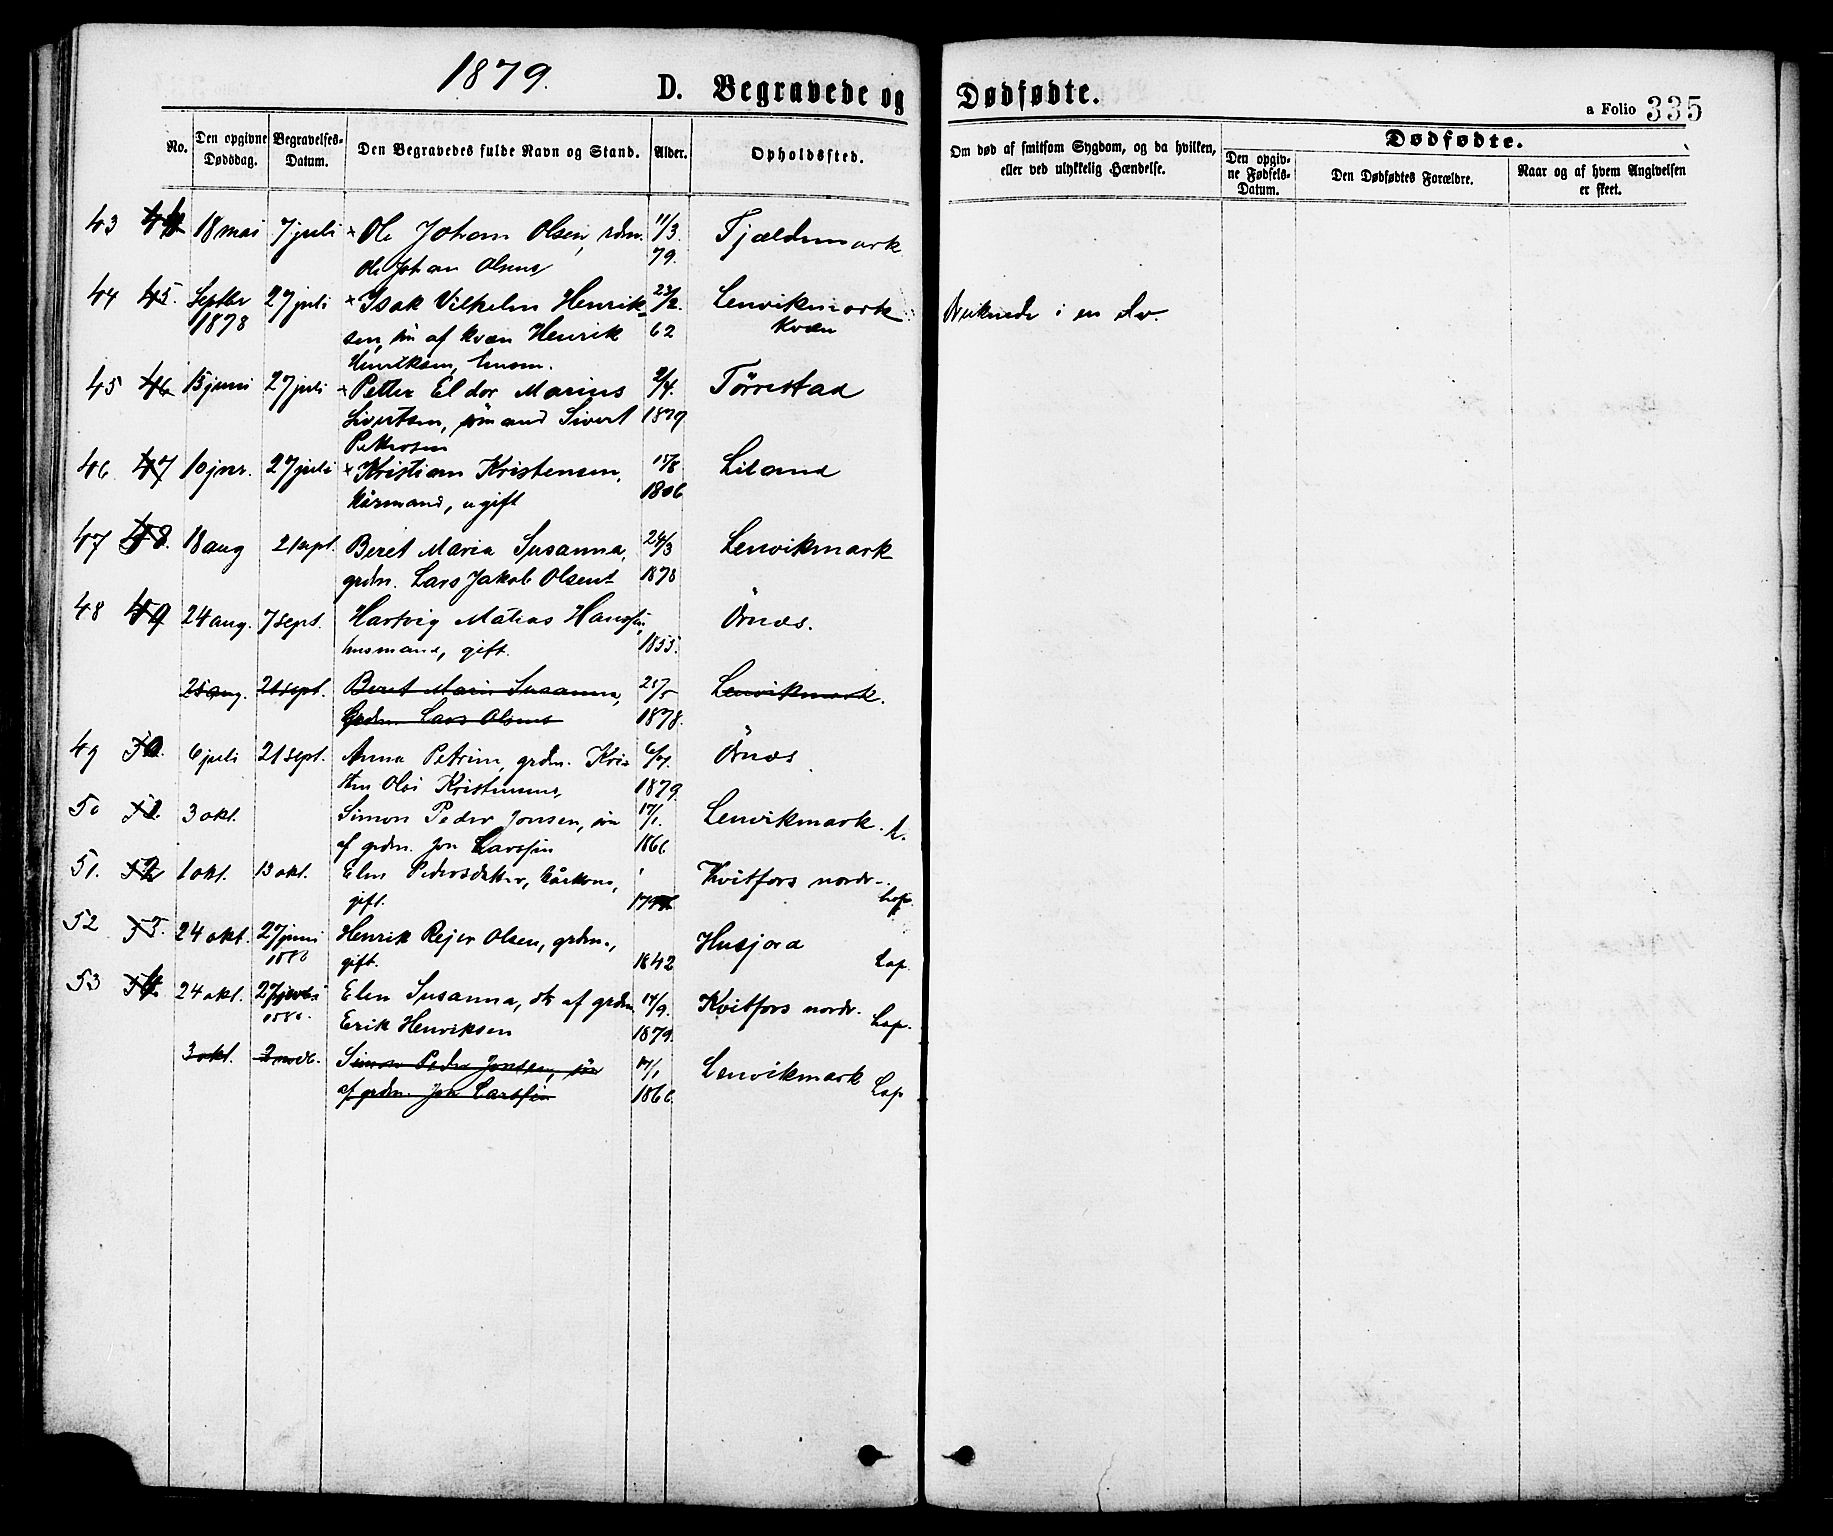 1879.
D. Begravede og Dødfødte.
a Folio 335
No.
Den opgivne Dødsdag.
Begravelses-Datum.
Den Begravedes fulde Navn og Stand.
Alder.
Opholdssted.
Om død af smitsom Sygdom, og da hvilken, eller ved ulykkelig Hændelse.
Dødfødte.
Den opgivne Fødsels-Datum.
Den Dødfødtes Forældre.
Naar og af hvem Angivelsen er skeet.
43 44 18 mai 7 juli × Ole Johan Olsen, 11/3 Fjældmark
Ole Johan Olsens 79.
44 45. Septbr 27 juli × Isak Vilhelm Henrik- 23/2 Lenvikmark
1878 sen, søn af kvæn Henrik 62 Kvæn i en elv.
Henriksen, 
45 46 15 juni 27 juli × Petter Eldor Marius 2/4 Tørrestad
Sivertsen, Sivert 1879
Pettersen
46 47 10 jnr. 27 juli × Kristian Kristensen, 15/8 Liland
kårmand, ugift 1806
47 48. 18 aug 21 sept. Beret Maria Susanna, 24/3 Lenvikmark
grdm. Lars Jakob Olsens 1878
48 49 24 aug. 7 sept. Hartvig Matias Hanssen, Örnæs.
husmand, gift. 1855.
25 aug. 21 sept. Beret Maria Susanna, 25/5 Lenvikmark.
Grdm. Lars Olsens 1878.
49 50. 6 juli 21 sept. Anna Petrine, grdm. Kris 6/7. Örnæs
Olai Kristensens, 1879.
50 51 3 okt. Simon Peder Jonsen, søn 17/1. Lenvikmark. L.
af grdm. Jon Larssen 1866
51. 52 1 okt. 13 okt. Elen Pedersdatter, kårkone, Kvitfors nordr.
gift. Lap.
52 53. 24 okt. 27 juni Henrik Rejer Olsen, grdm., Husjord
1880 gift. 1842 Lap.
53 54 24 okt. 27 juni Elen Susanna, dtr af grdm 14/9. Kvitfors nordr.
1880. Erik Henriksen 1879. Lap.
3 okt. 2 novb. Simon Peder Jonsen, søn 17/1 Lenvikmark
af grdm. Jon Larssen 1866. Lap